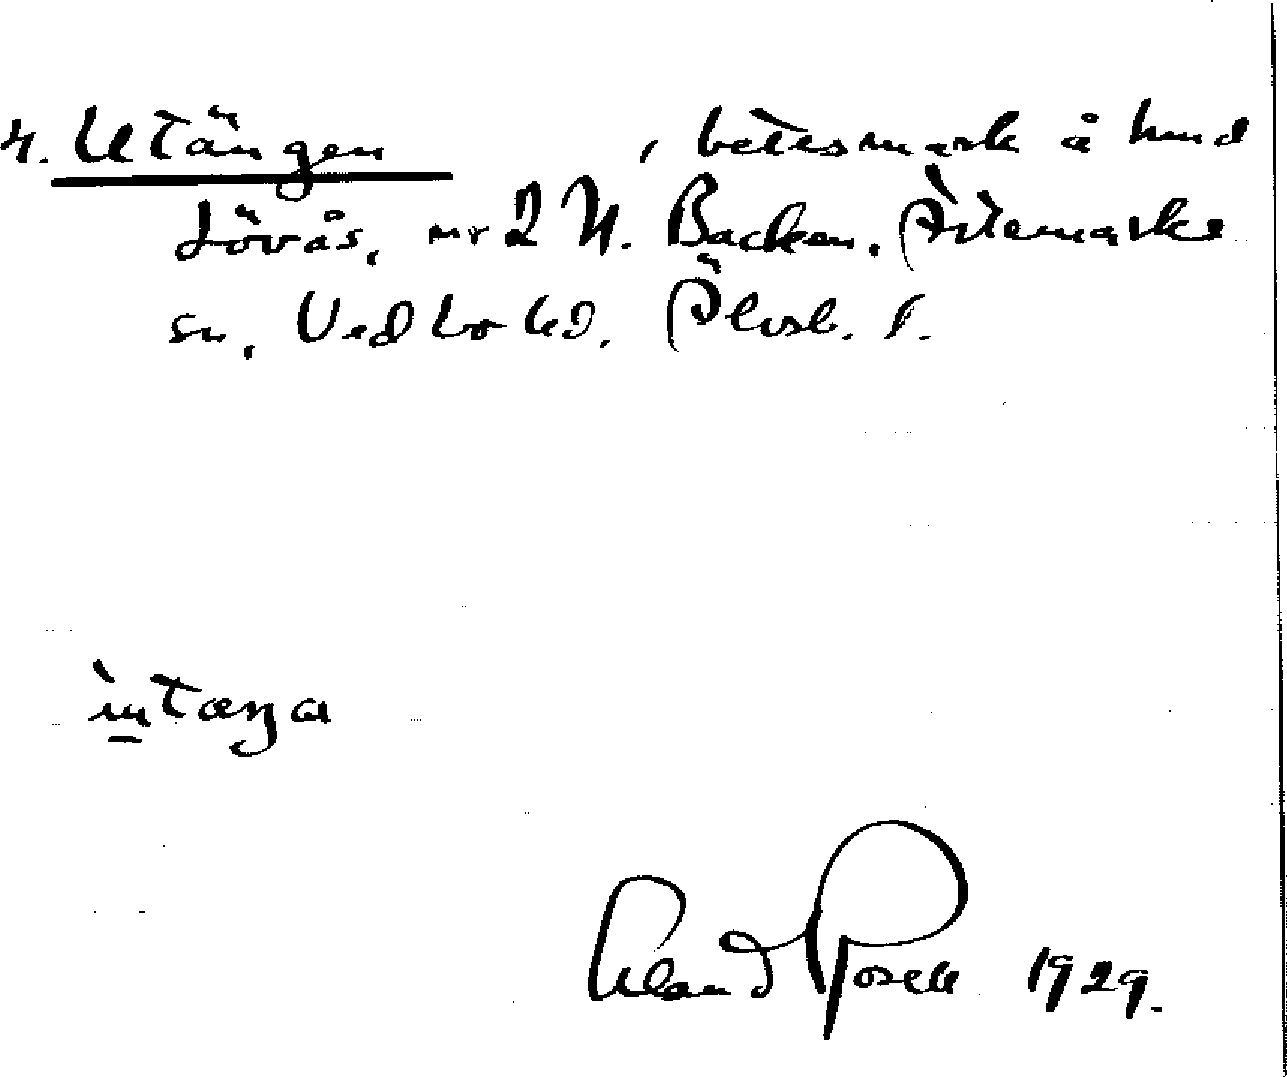 4. Utängen , betesmark å hmd
Lövås, nr 2 N. Backen. Ärtemarks
sn, Vedbo hd, Älvsb. l.
ùtæŋa
Erland Rosell 1929.